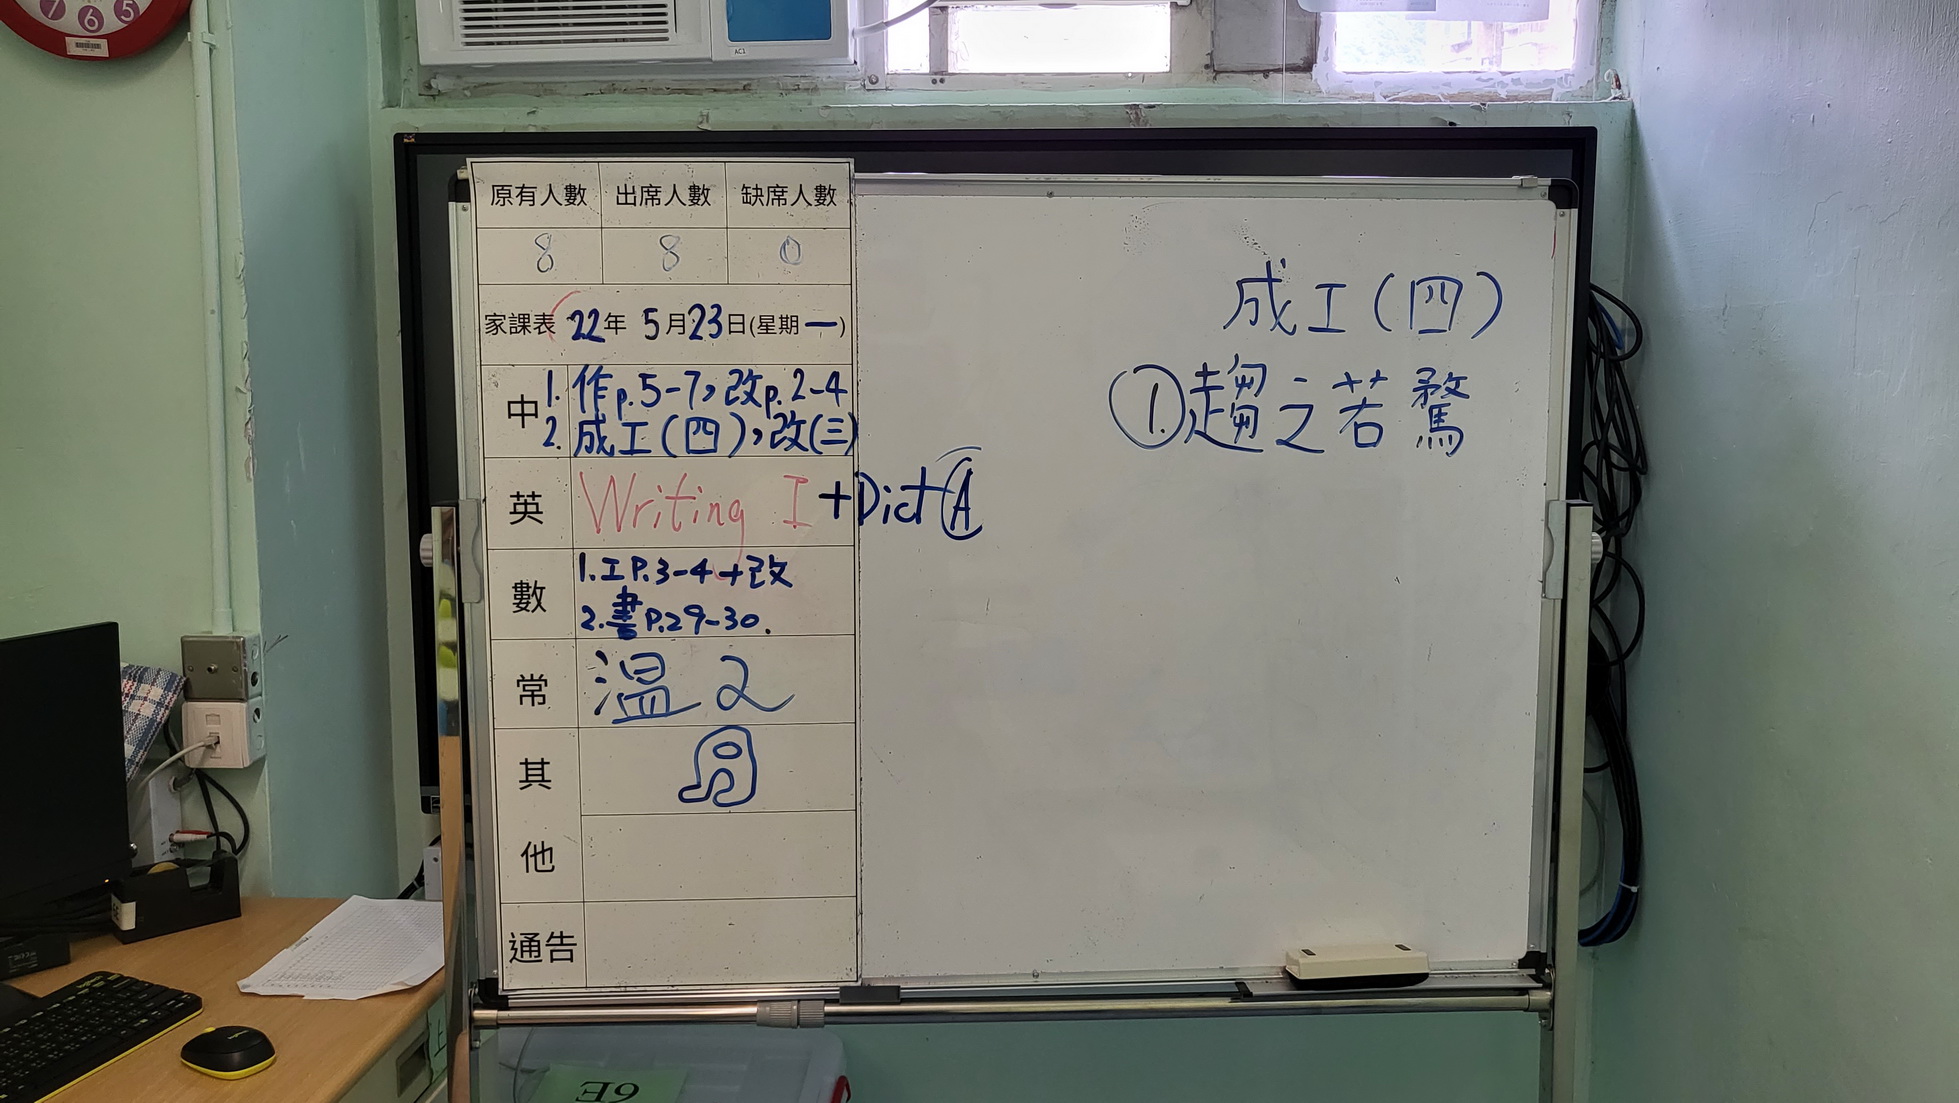 7 6 5
AC1
原有人數 出席人數 缺席人數
8 8 0
家課表 22年 5月23日(星期一)
中 1. 作p.5-7,改p.2-4
2. 成工(四),改(三)
英 Writing I +Dict A
數 1.工P.3-4+改
2.書P.29-30.
常 温2
其
他
通告
成工(四)
①.趨之若鶩
6E